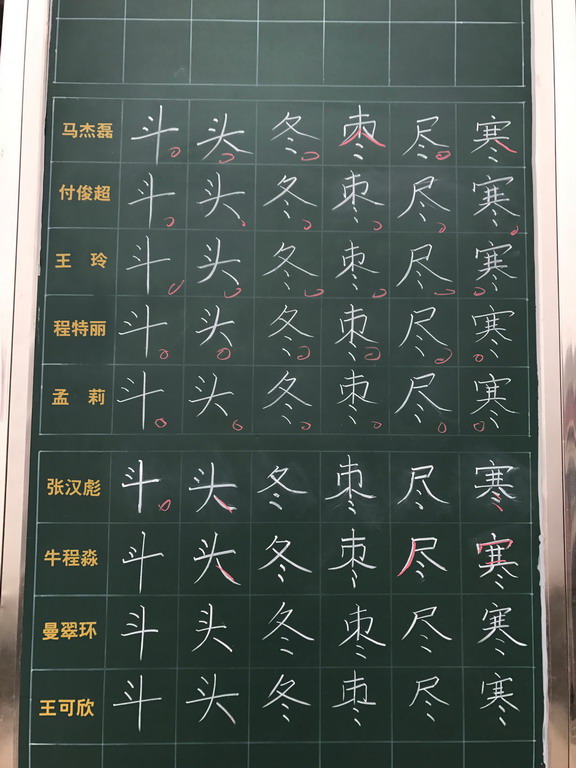 马杰磊 斗 头 冬 枣 尽 寒
付俊超 斗 头 冬 枣 尽 寒
王 玲 斗 头 冬 枣 尽 寒
程特丽 斗 头 冬 枣 尽 寒
孟 莉 斗 头 冬 枣 尽 寒
张汉彪 斗 头 冬 枣 尽 寒
牛程淼 斗 头 冬 枣 尽 寒
曼翠环 斗 头 冬 枣 尽 寒
王可欣 斗 头 冬 枣 尽 寒